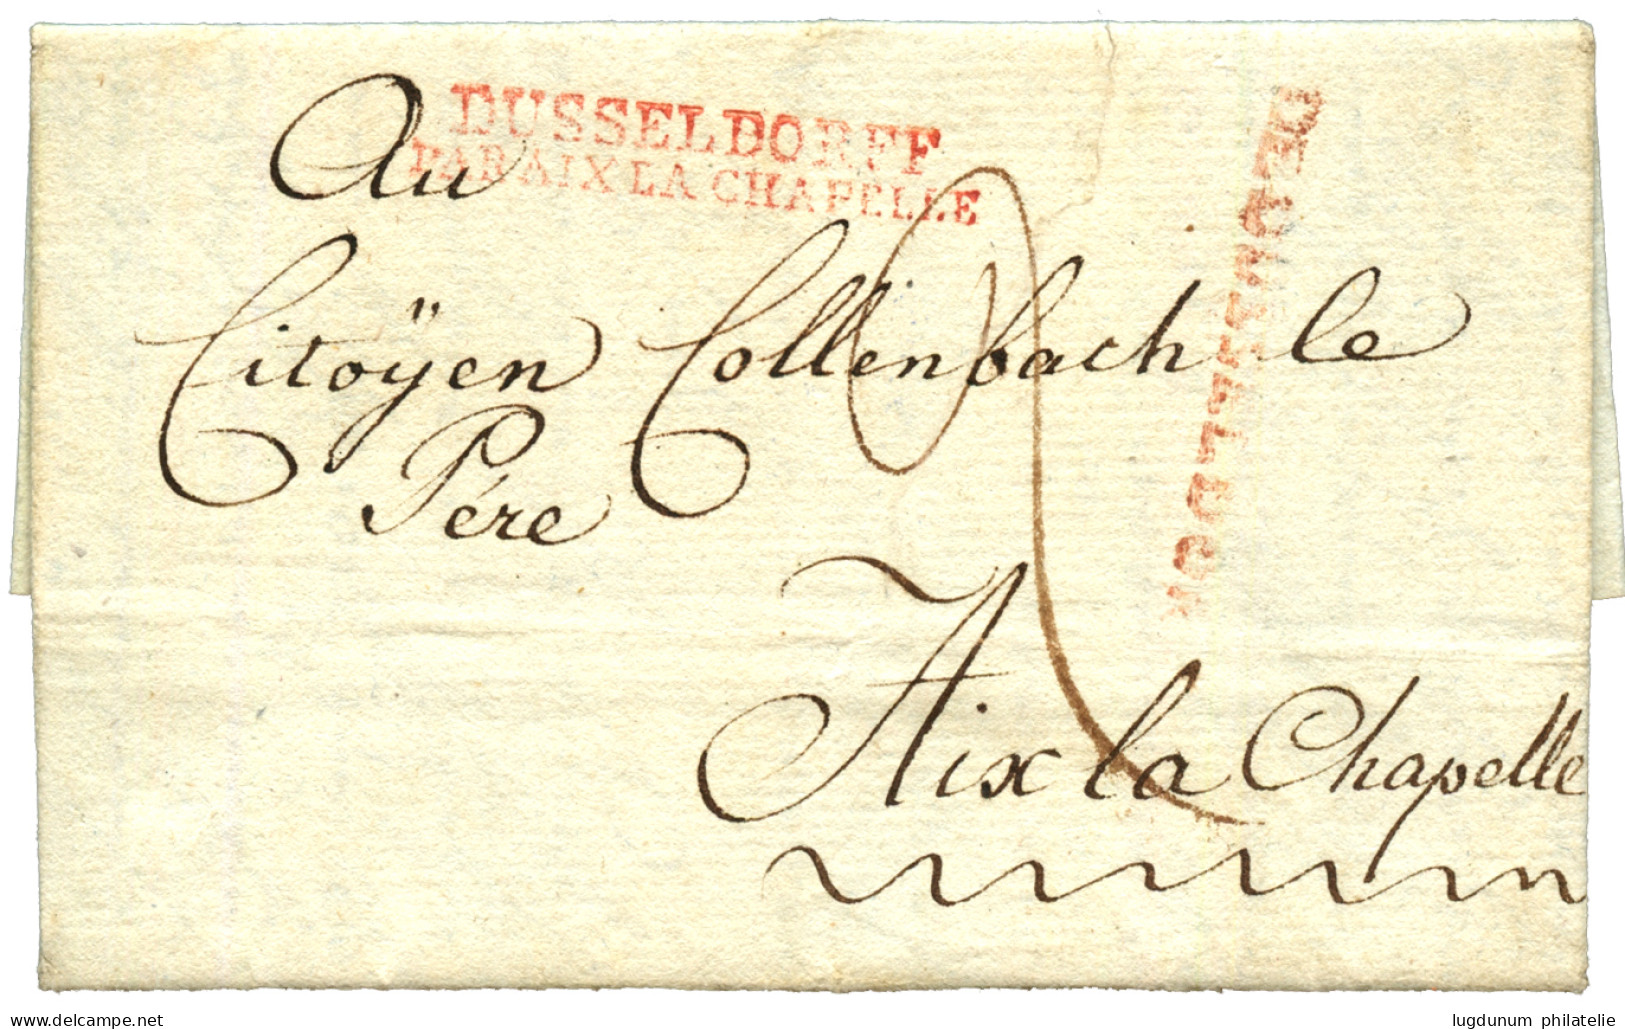 DUSSELDORFF
PAR AIX LA CHAPELLE
DUSSELDOR
Au
Citoÿen Collenbach le
Pére
Aix la Chapelle
www.delcampe.net
lugdunum philatelie